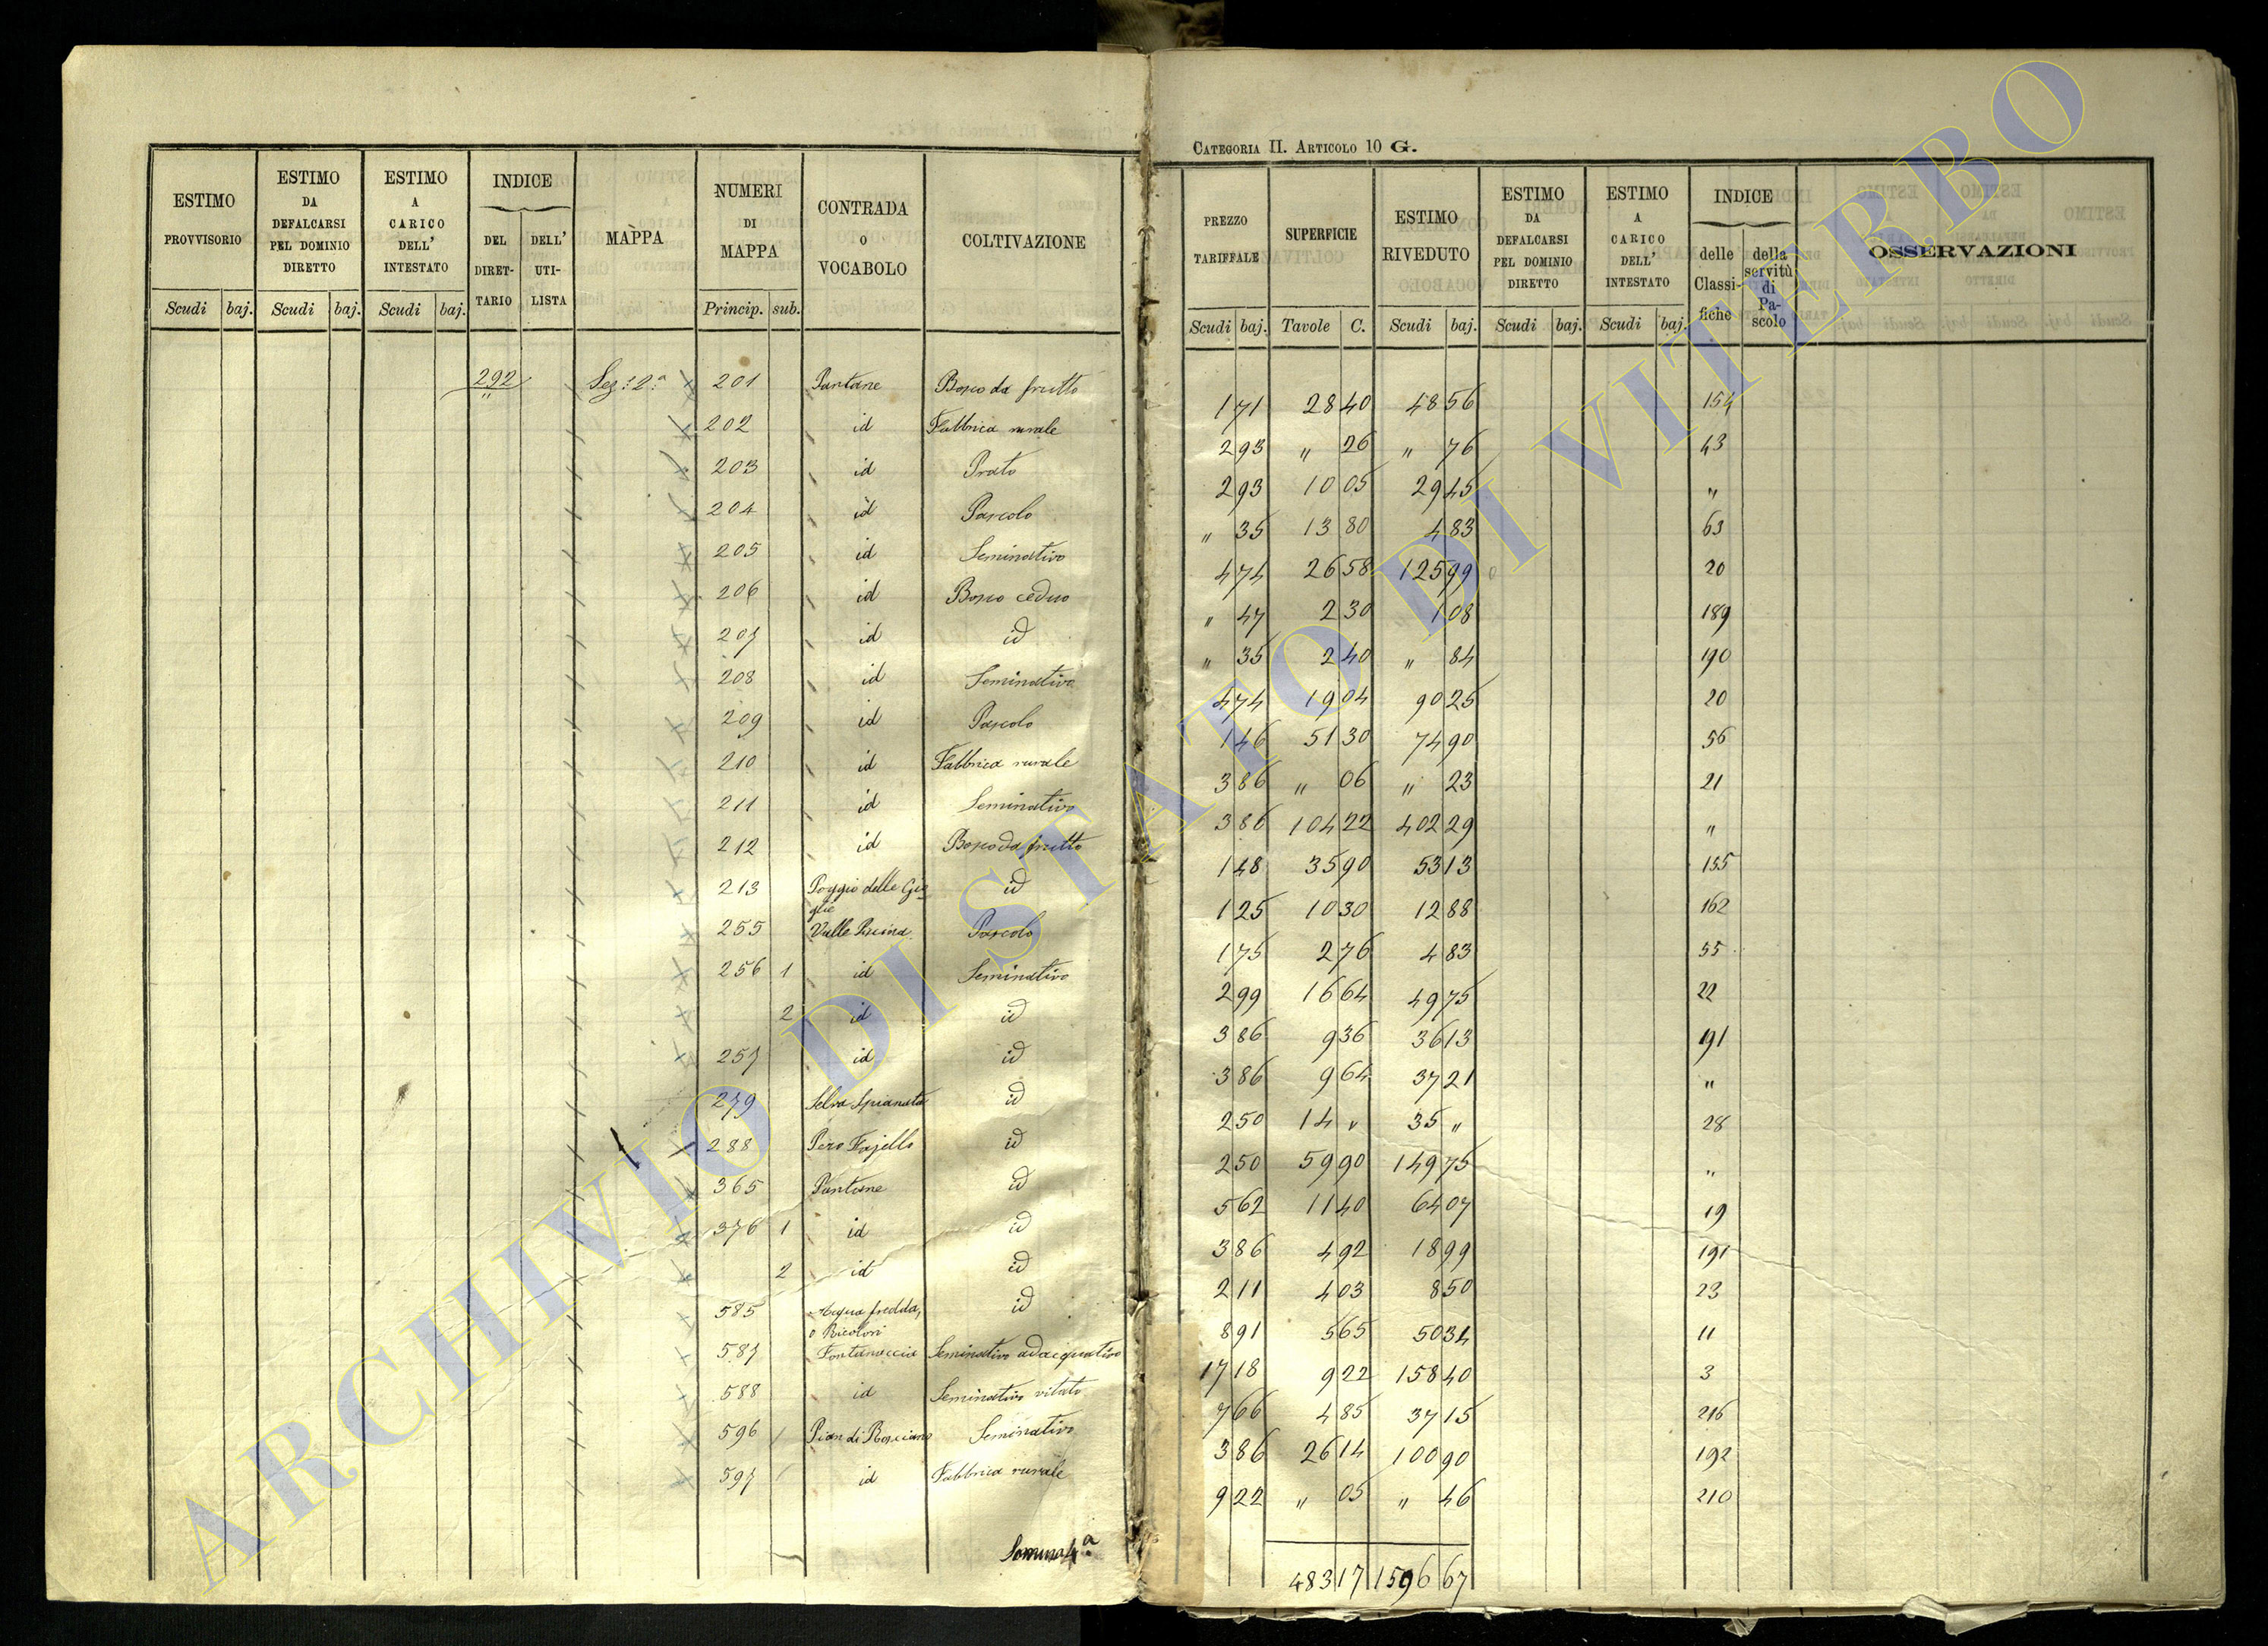 CATEGORIA II. ARTICOLO 10 G.
ESTIMO PROVVISORIO | ESTIMO DA DEFALCARSI PEL DOMINIO DIRETTO | ESTIMO A CARICO DELL' INTESTATO | INDICE | MAPPA | NUMERI DI MAPPA | CONTRADA O VOCABOLO | COLTIVAZIONE
DEL DIRETTARIO | DELL' UTILISTA
Scudi baj. | Scudi baj. | Scudi baj. | Princip. sub.
292 Sez: 2ª 201 Pantane Bosco da frutto
202 id Fabbrica rurale
203 id Prato
204 id Pascolo
205 id Seminativo
206 id Bosco ceduo
207 id id
208 id Seminativo
209 id Pascolo
210 id Fabbrica rurale
211 id Seminativo
212 id Bosco da frutto
213 Poggio delle Gi- id
glie
255 Valle Pascolo
256 1 id Seminativo
2 id id
257 id id
279 Selva Spianata id
288 Pero Fajello id
365 Pantane id
376 1 id id
2 id id
585 Acqua fredda, id
o Ricoveri
587 Fontanaccia Seminativo adacquativo
588 id Seminativo vitato
596 Pian di Rosciano Seminativo
597 id Fabbrica rurale
Somma 4ª
PREZZO TARIFFALE | SUPERFICIE | ESTIMO RIVEDUTO | ESTIMO DA DEFALCARSI PEL DOMINIO DIRETTO | ESTIMO A CARICO DELL' INTESTATO | INDICE | OSSERVAZIONI
delle Classifiche | della servitù di Pascolo
Scudi baj. | Tavole C. | Scudi baj. | Scudi baj. | Scudi baj.
1 71 28 40 48 56 154
2 93 " 26 " 76 43
2 93 10 05 29 45 "
" 35 13 80 4 83 63
4 74 26 58 125 99 20
" 47 2 30 1 08 189
" 35 2 40 " 84 190
4 74 19 04 90 25 20
1 46 51 30 74 90 56
3 86 " 06 " 23 21
3 86 104 22 402 29 "
1 48 35 90 53 13 155
1 25 10 30 12 88 162
1 75 2 76 4 83 55
2 99 16 64 49 75 22
3 86 9 36 36 13 191
3 86 9 64 37 21 "
2 50 14 " 35 " 28
2 50 59 90 149 75 "
5 62 11 40 64 07 19
3 86 4 92 18 99 191
2 11 4 03 8 50 23
8 91 5 65 50 34 11
17 18 9 22 158 40 3
7 66 4 85 37 15 216
3 86 26 14 100 90 192
9 22 " 05 " 46 210
483 17 1596 67
ARCHIVIO DI STATO DI VITERBO